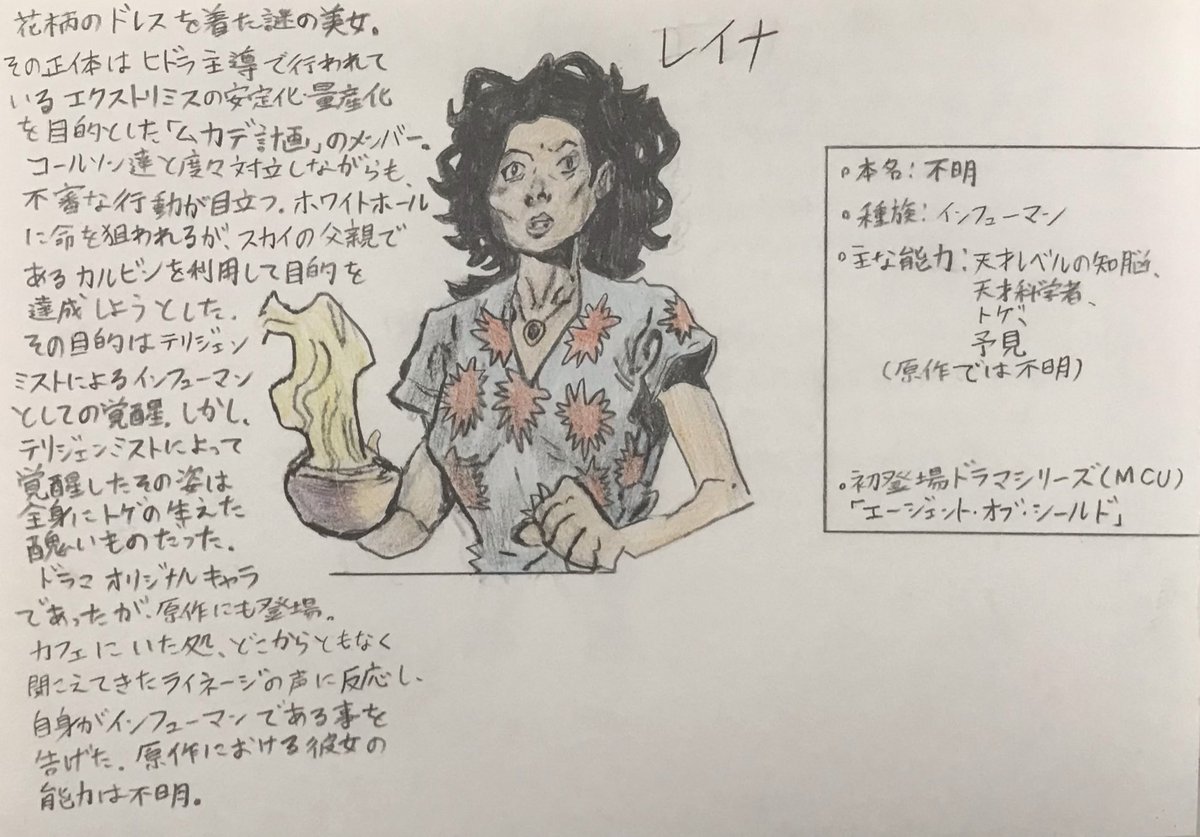 花柄のドレスを着た謎の美女。
その正体はヒドラ主導で行われて
いるエクストリミスの安定化・量産化
を目的とした「ムカデ計画」のメンバー。
コールソン達と度々対立しながらも、
不審な行動が目立つ。ホワイトホール
に命を狙われるが、スカイの父親で
あるカルビンを利用して目的を
達成しようとした。
その目的はテリジェン
ミストによるインフューマン
としての覚醒。しかし、
テリジェンミストによって
覚醒したその姿は
全身にトゲの生えた
醜いものだった。
ドラマオリジナルキャラ
であったが、原作にも登場。
カフェにいた処、どこからともなく
聞こえてきたライネージの声に反応し、
自身がインフューマンである事を
告げた。原作における彼女の
能力は不明。
レイナ
・本名:不明
・種族:インフューマン
・主な能力:天才レベルの知脳、
天才科学者、
トゲ、
予見
(原作では不明)
・初登場ドラマシリーズ(MCU)
「エージェント・オブ・シールド」